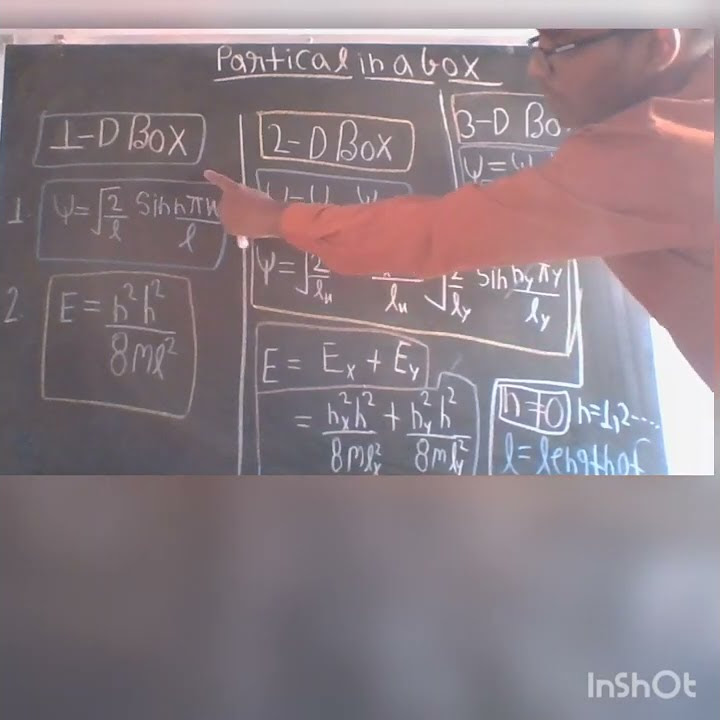 Partical in a box
1-D Box
1. ψ=√2/l Sin nπx/l
2. E = n²h²/8ml²
2-D Box
ψ=√2/lx √2/ly Sin nyπy/ly
E = Ex + Ey
= nx²h²/8mlx² + ny²h²/8mly²
3-D
n≠0 n=1,2....
l=length of
InShOt